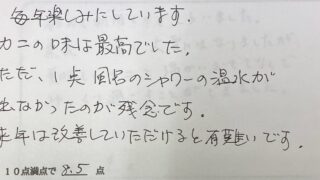 毎年楽しみにしています。
カニの味は最高でした。
ただ、1点風呂のシャワーの温水が
出なかったのが残念です。
来年は改善していただけると有難いです。
10点満点で 8.5 点